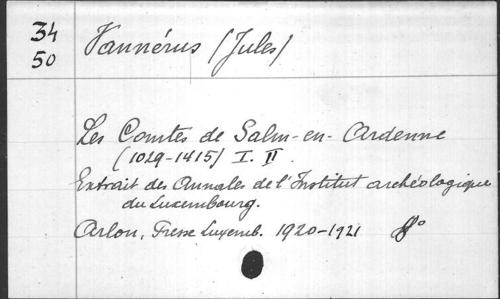 34
50
Vannérus (Jules)
Les Comtes de Salm-en-Ardenne
(1029-1415) I. II.
Extrait des Annales de l'Institut archéologique
du Luxembourg.
Arlon, Presse Luxemb. 1920-1921 8°